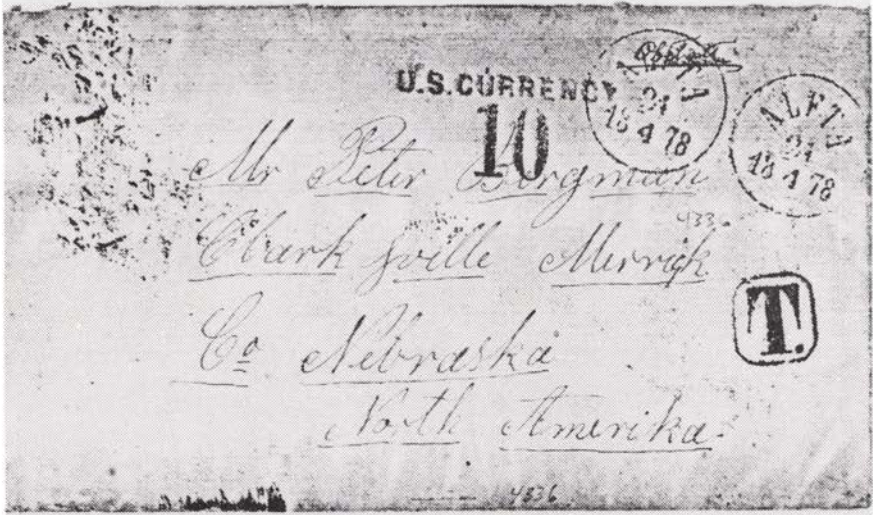 U.S. CURRENCY
10
ALFTA
21
18 4 78
Mr Peter Bergman
4336
Clarksville Merrick
Co Nebraska
T.
North Amerika
4336